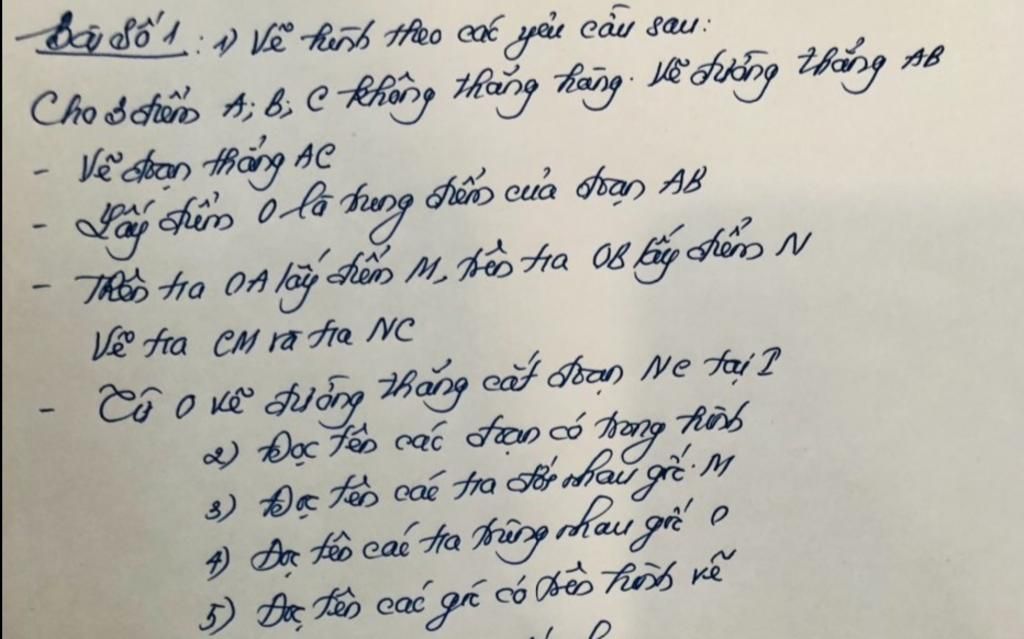 Bài số 1: 1) Vẽ hình theo các yêu cầu sau:
Cho 3 điểm A; B; C không thẳng hàng. Vẽ đường thẳng AB
- Vẽ đoạn thẳng AC
- Lấy điểm O là trung điểm của đoạn AB
- Trên tia OA lấy điểm M, trên tia OB lấy điểm N
Vẽ tia CM và tia NC
- Từ O vẽ đường thẳng cắt đoạn NC tại I
2) Đọc tên các đoạn có trong hình
3) Đọc tên các tia đối nhau gốc M
4) Đọc tên các tia trùng nhau gốc O
5) Đọc tên các góc có trên hình vẽ